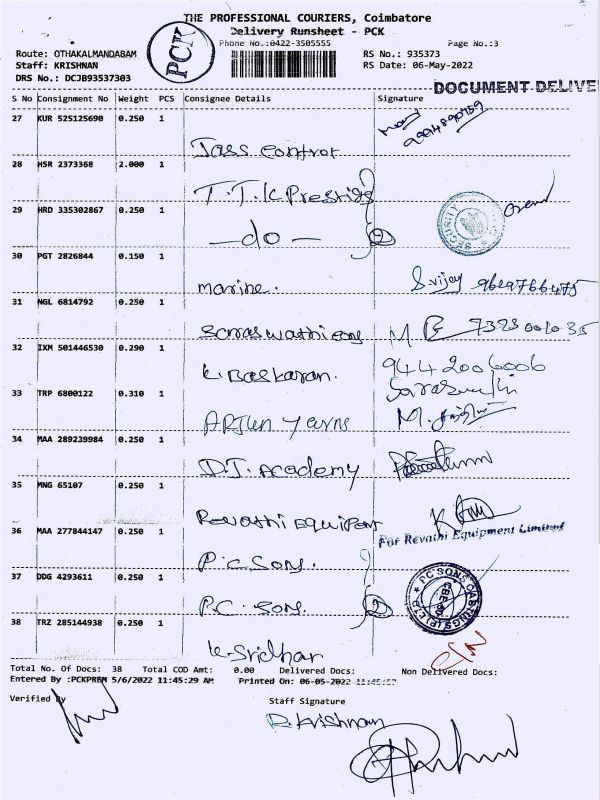 THE PROFESSIONAL COURIERS, Coimbatore
Delivery Runsheet - PCK
Phone No.:0422-3505555 Page No.:3
PCK
Route: OTHAKALMANDABAM RS No.: 935373
Staff: KRISHNAN RS Date: 06-May-2022
DRS No.: DCJB93537303
DOCUMENT DELIVE
S No Consignment No Weight PCS Consignee Details Signature
27 KUR 525125690 0.250 1
Jass control
28 HSR 2373368 2.000 1
T.T.K Prestige
29 HRD 335302867 0.250 1
— do — 2
SECURITY
30 PGT 2826844 0.150 1
marine. S.vijay 9629766475
31 NGL 6814792 0.250 1
Saraswathi eng
32 IXM 501446530 0.290 1
K. Baskaran. 9442006006
33 TRP 6800122 0.310 1
Arjun yarns
34 MAA 289239984 0.250 1
D.J. Academy
35 MNG 65107 0.250 1
Revathi Equipment
For Revathi Equipment Limited
36 MAA 277844147 0.250 1
P.C Sons.
37 DDG 4293611 0.250 1
P.C. Sons. 2
PC SONS CASTINGS (P) LTD
38 TRZ 285144938 0.250 1
K. Sridhar
Total No. Of Docs: 38 Total COD Amt: 0.00 Delivered Docs: Non Delivered Docs:
Entered By :PCKPREM 5/6/2022 11:45:29 AM Printed On: 06-05-2022
Verified By Staff Signature
R. Krishnan